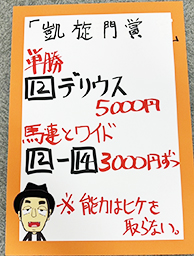 「凱旋門賞」
単勝
12デリウス
5000円
馬連とワイド
12-14 3000円ずつ
※能力はヒケを
取らない。